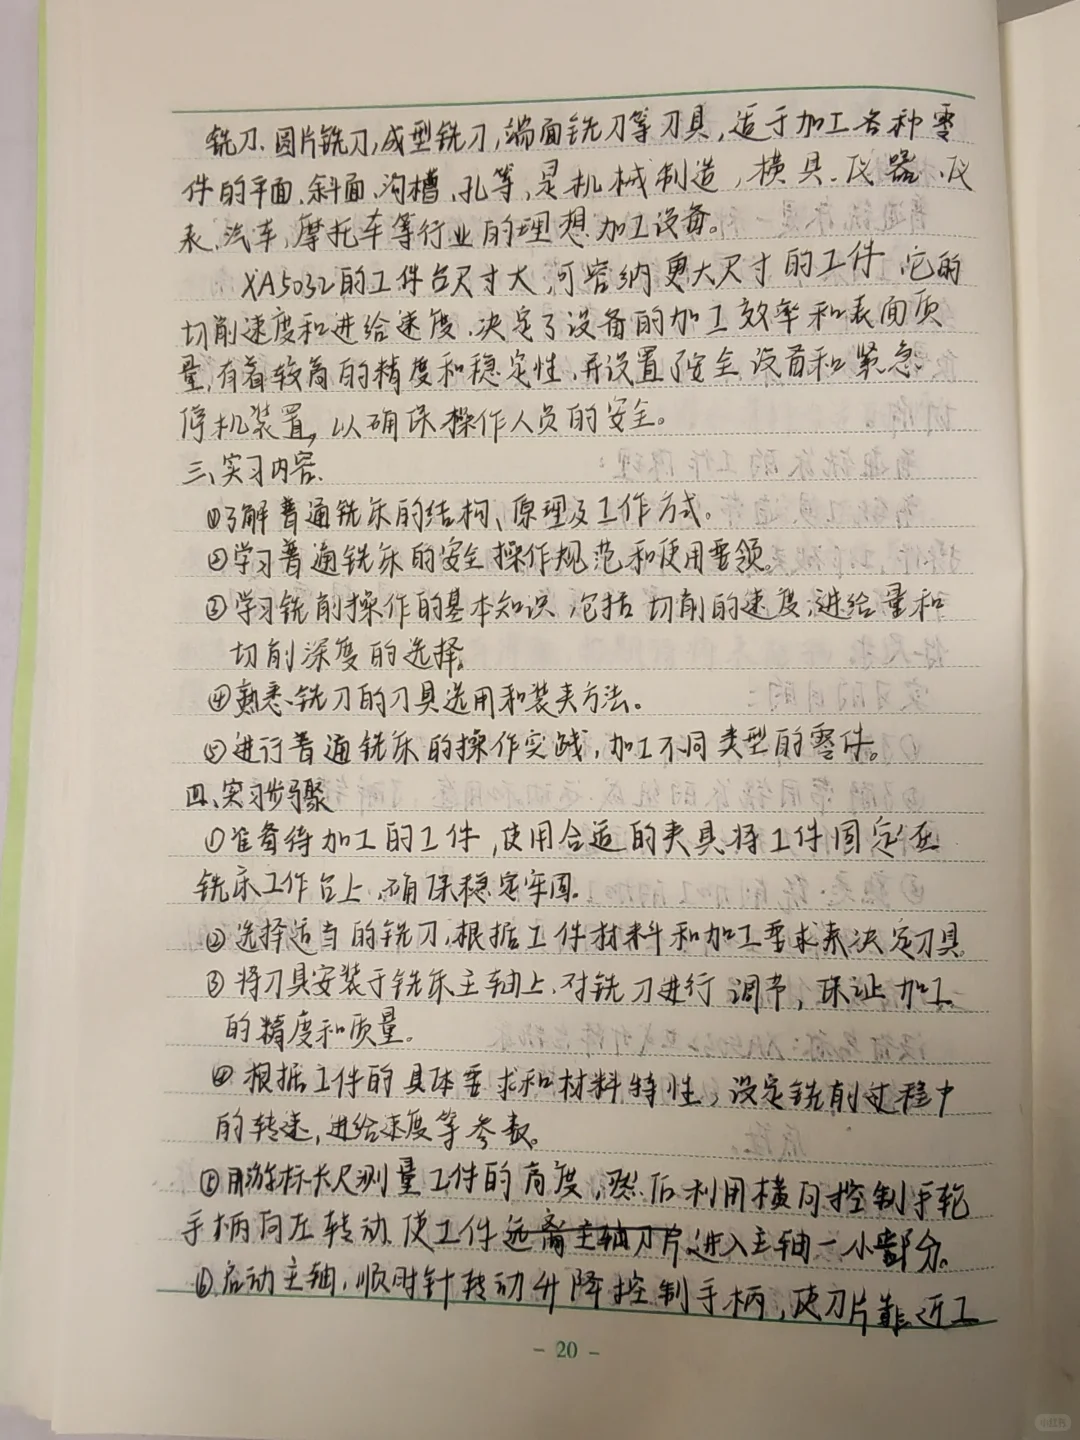 铣刀、圆片铣刀,成型铣刀,端面铣刀等刀具,适于加工各种零
件的平面、斜面、沟槽、孔等,是机械制造,模具、仪器、仪
表、汽车,摩托车等行业的理想加工设备。
XA5032的工件台尺寸大,可容纳更大尺寸的工件,它的
切削速度和进给速度、决定了设备的加工效率和表面质
量,有着较高的精度和稳定性,并设置了安全设备和紧急
停机装置,以确保操作人员的安全。
三、实习内容.
①了解普通铣床的结构、原理及工作方式。
②学习普通铣床的安全操作规范和使用要领。
③学习铣削操作的基本知识,包括切削的速度,进给量和
切削深度的选择。
④熟悉铣刀的刀具选用和装夹方法。
⑤进行普通铣床的操作实践,加工不同类型的零件。
四、实习步骤
①准备待加工的工件,使用合适的夹具将工件固定在
铣床工作台上,确保稳定牢固。
②选择适当的铣刀,根据工件材料和加工要求来决定刀具
③将刀具安装于铣床主轴上,对铣刀进行调节,保证加工
的精度和质量。
④根据工件的具体要求和材料特性,设定铣削过程中
的转速,进给速度等参数。
⑤用游标卡尺测量工件的高度,然后利用横向控制手轮
手柄向左转动,使工件远离主轴刀片,进入主轴一小部分。
⑥启动主轴,顺时针转动升降控制手柄,使刀片靠近工
- 20 -
小红书